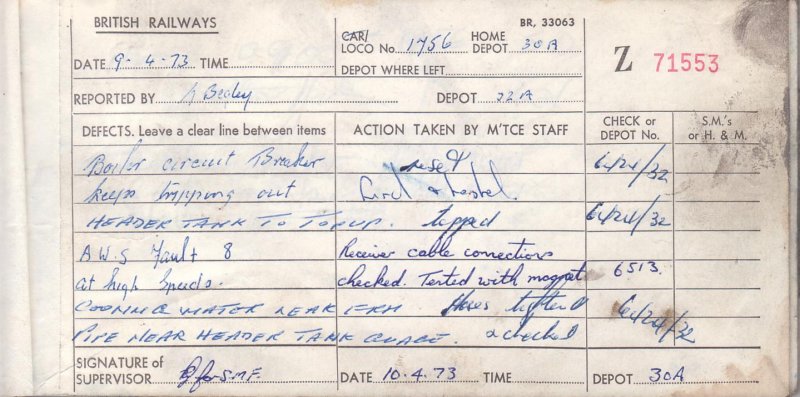 BRITISH RAILWAYS
BR, 33063
CAR/
LOCO No. 1756 HOME DEPOT 30A
Z 71553
DATE 9-4-73 TIME
DEPOT WHERE LEFT
REPORTED BY Begley DEPOT 22A
DEFECTS. Leave a clear line between items
ACTION TAKEN BY M'TCE STAFF
CHECK or DEPOT No.
S.M.'s or H. & M.
Boiler circuit Breaker reset 6424/32
keeps tripping out & tested.
HEADER TANK TO TOPUP. topped 6424/32
A.W.S Fault 8 Receiver cable connections
at high speeds. checked. Tested with magnet 6513.
COOLING WATER LEAK FRM Hoses tightened 6424/32
PIPE NEAR HEADER TANK GUAGE. & checked
SIGNATURE of SUPERVISOR for S.M.F. DATE 10.4.73 TIME DEPOT 30A